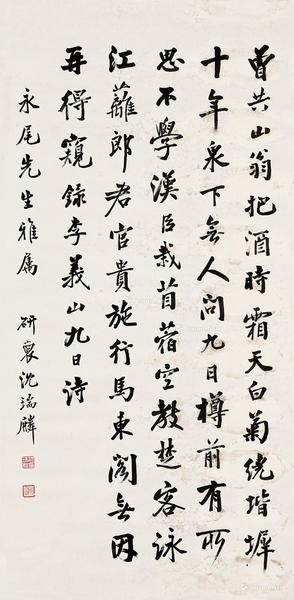 曾共山翁把酒時霜天白菊繞堦墀
十年泉下無人問九日樽前有所
思不學漢臣栽苜蓿空教楚客詠
江蘺郎君官貴施行馬東閣無因
再得窺錄李義山九日詩
永尾先生雅屬 研裔沈瑞麟